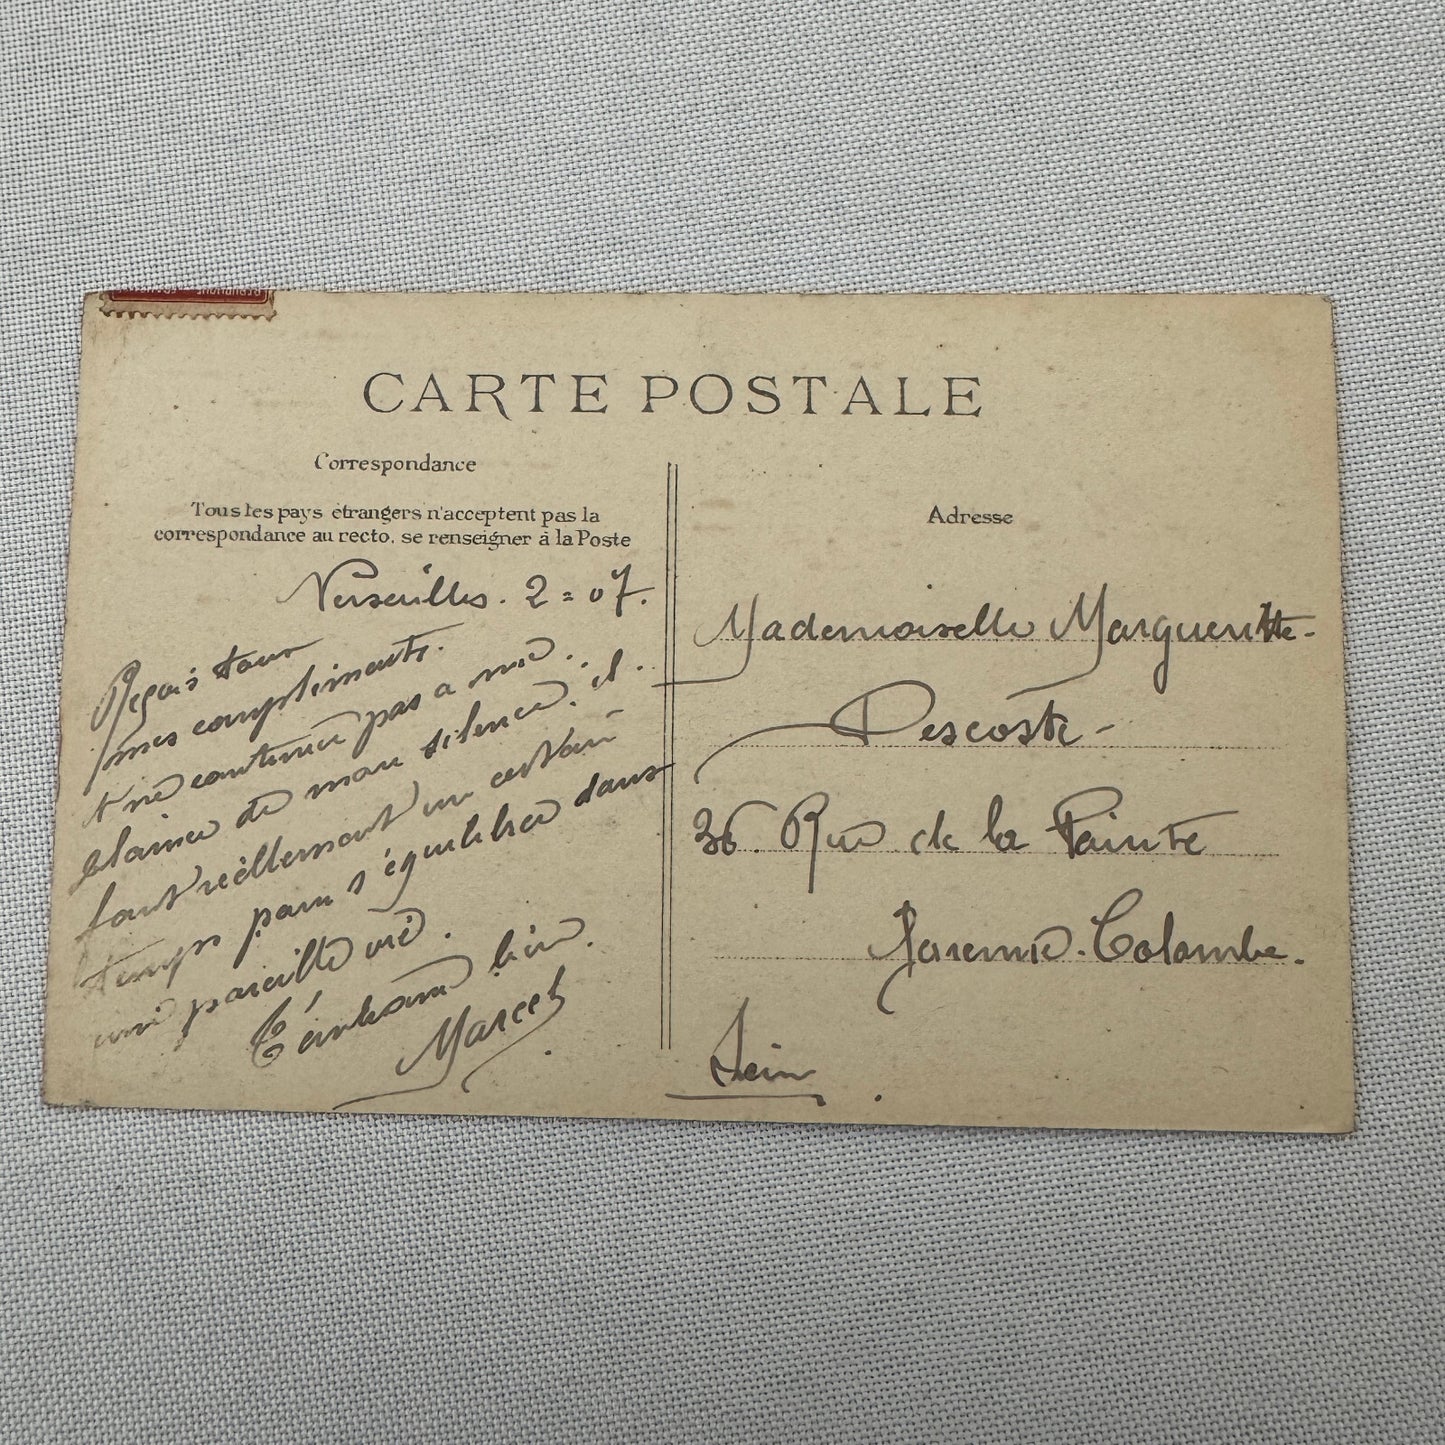 CARTE POSTALE
Correspondance
Tous les pays étrangers n'acceptent pas la
correspondance au recto, se renseigner à la Poste
Adresse
Versailles. 2 = 07.
Reçois tous
mes compliments.
et ne continue pas a me
plaindre de mon silence, il
faut réellement un certain
temps pour s'équilibrer dans
une pareille vie.
bien.
Marcel
Mademoiselle Marguerite
Descoste
36. Rue de la Pointe
Garenne-Colombe.
Seine